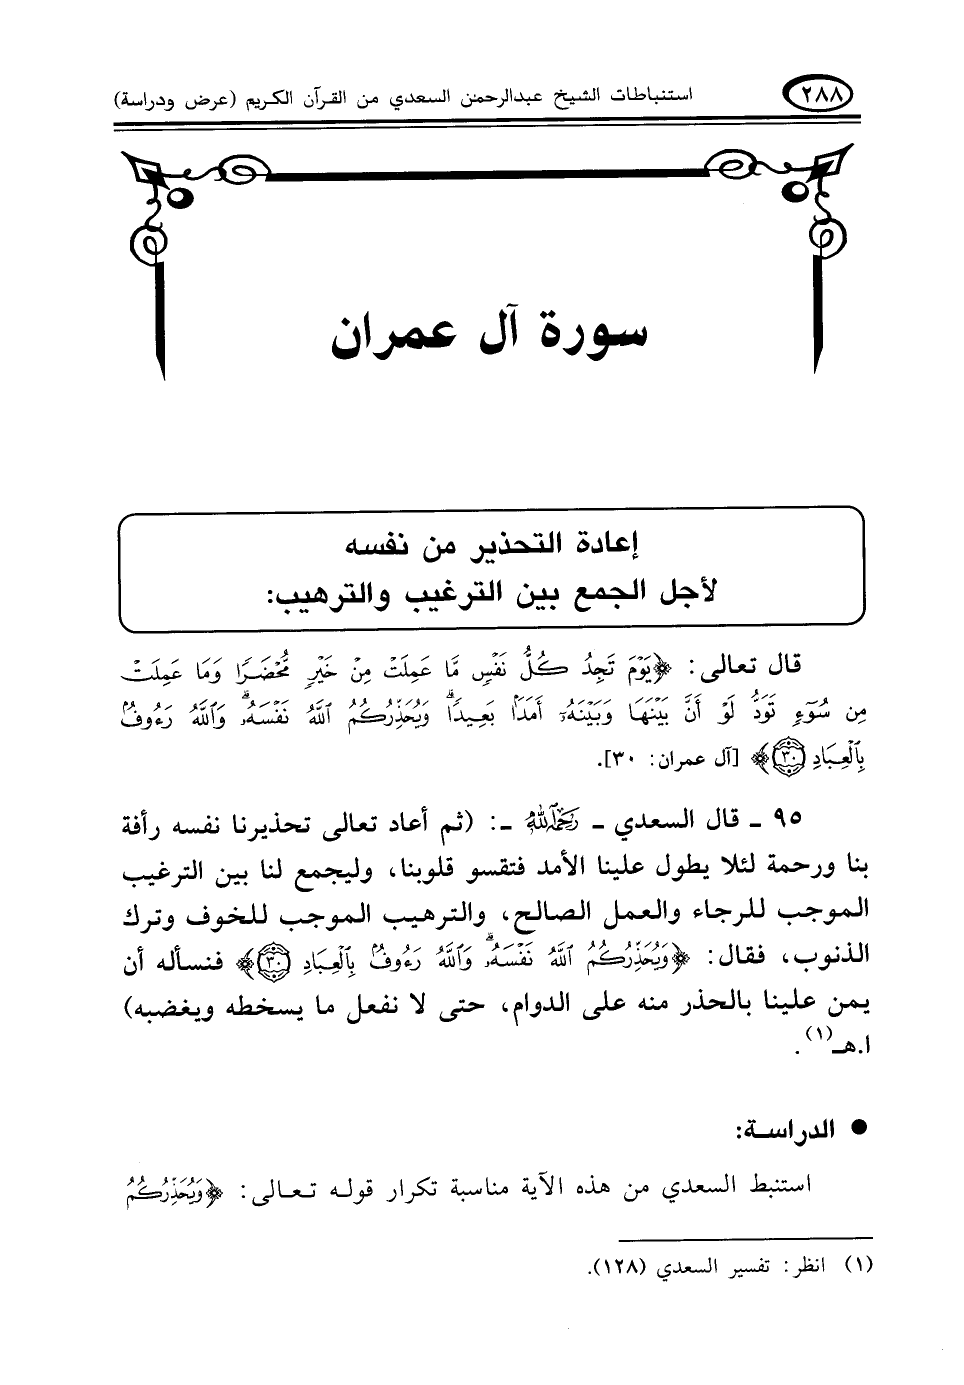 ٢٨٨
استنباطات الشيخ عبدالرحمن السعدي من القرآن الكريم (عرض ودراسة)
سورة آل عمران
إعادة التحذير من نفسه
لأجل الجمع بين الترغيب والترهيب:
قال تعالى: ﴿يَوْمَ تَجِدُ كُلُّ نَفْسٍ مَّا عَمِلَتْ مِنْ خَيْرٍ مُّحْضَرًا وَمَا عَمِلَتْ
مِن سُوٓءٍ تَوَدُّ لَوْ أَنَّ بَيْنَهَا وَبَيْنَهُۥٓ أَمَدًۢا بَعِيدًاۗ وَيُحَذِّرُكُمُ ٱللَّهُ نَفْسَهُۥۗ وَٱللَّهُ رَءُوفٌۢ
بِٱلْعِبَادِ ٣٠﴾ [آل عمران: ٣٠].
٩٥ ـ قال السعدي ـ رَحِمَهُ اللَّهُ ـ: (ثم أعاد تعالى تحذيرنا نفسه رأفة
بنا ورحمة لئلا يطول علينا الأمد فتقسو قلوبنا، وليجمع لنا بين الترغيب
الموجب للرجاء والعمل الصالح، والترهيب الموجب للخوف وترك
الذنوب، فقال: ﴿وَيُحَذِّرُكُمُ ٱللَّهُ نَفْسَهُۥۗ وَٱللَّهُ رَءُوفٌۢ بِٱلْعِبَادِ ٣٠﴾ فنسأله أن
يمن علينا بالحذر منه على الدوام، حتى لا نفعل ما يسخطه ويغضبه)
ا.هـ(١).
● الدراسة:
استنبط السعدي من هذه الآية مناسبة تكرار قوله تعالى: ﴿وَيُحَذِّرُكُمُ
(١) انظر: تفسير السعدي (١٢٨).